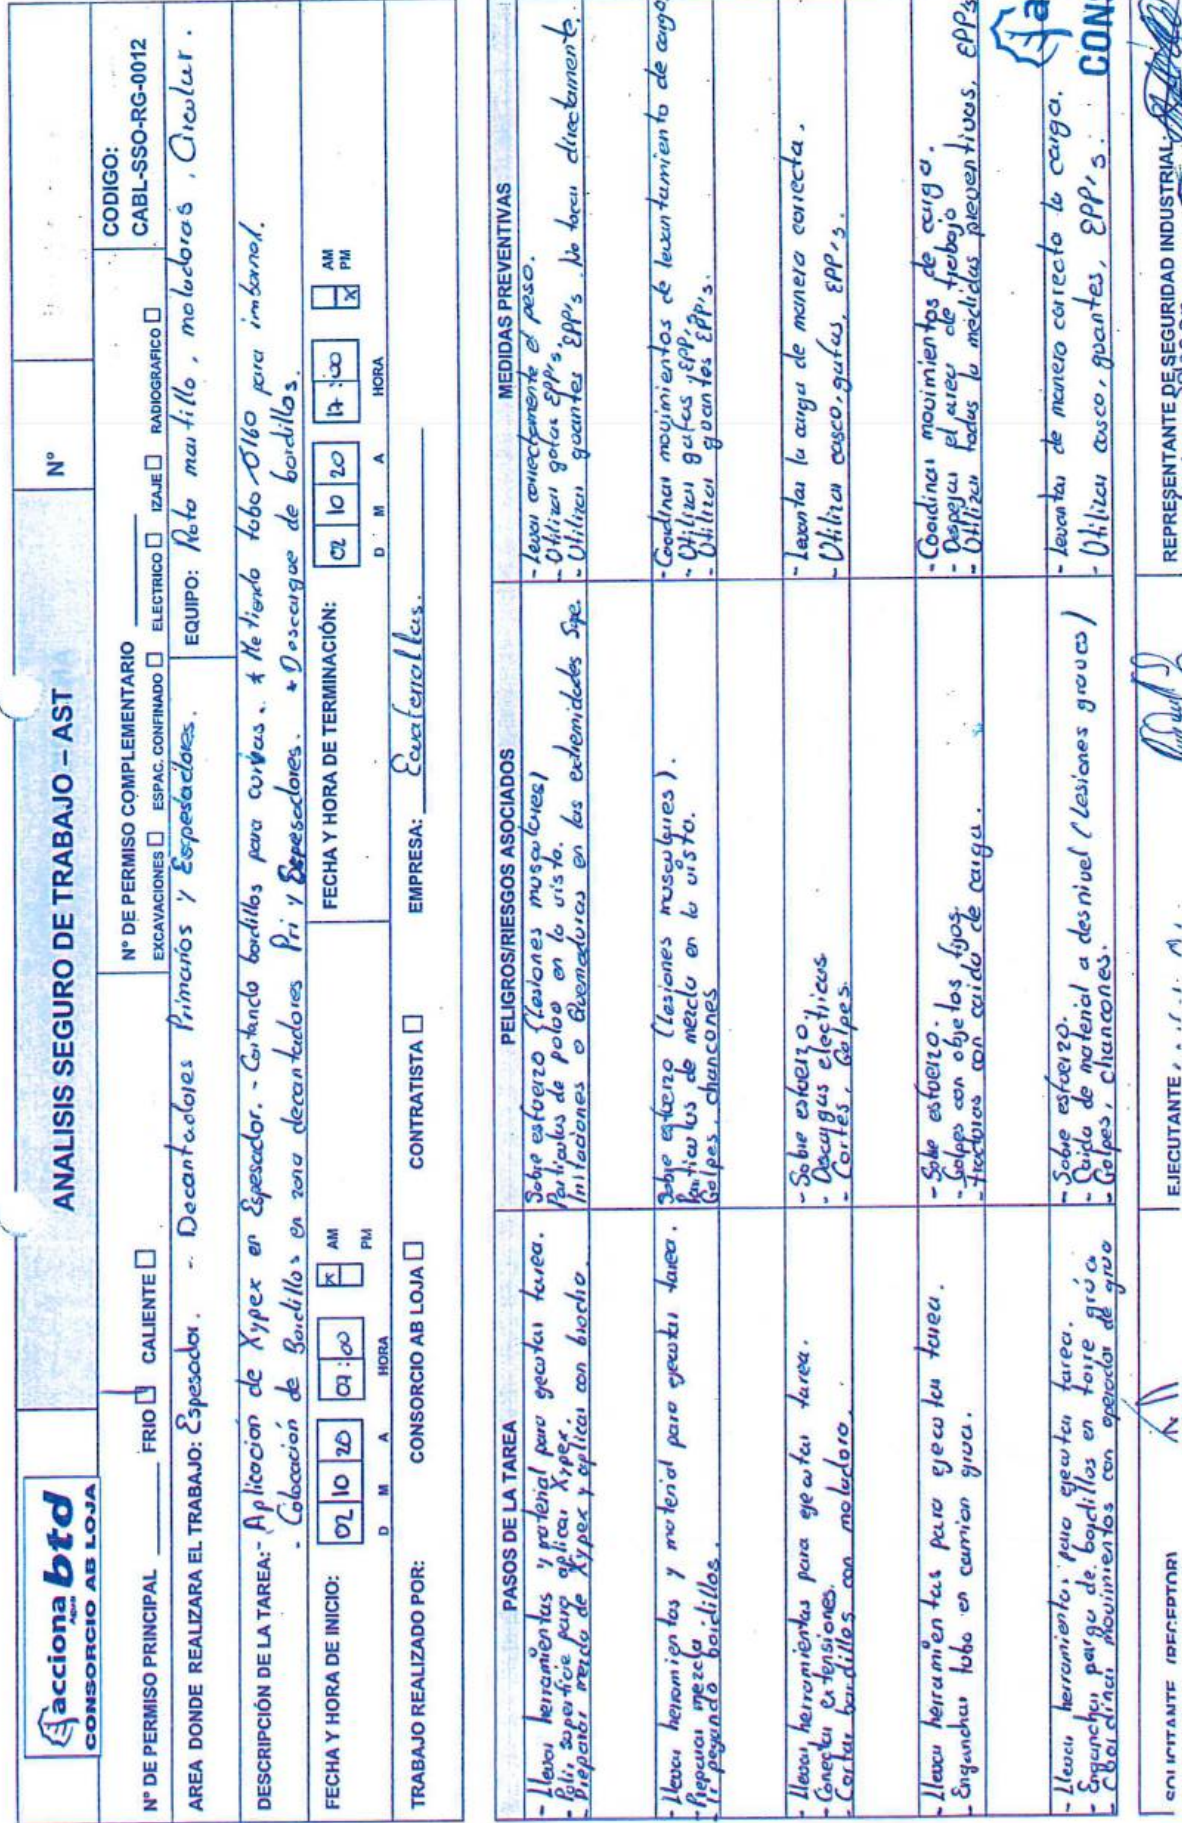 acciona btd
Agua
CONSORCIO AB LOJA
ANALISIS SEGURO DE TRABAJO – AST
N°
N° DE PERMISO PRINCIPAL
FRIO
CALIENTE
N° DE PERMISO COMPLEMENTARIO
EXCAVACIONES ESPAC. CONFINADO ELECTRICO IZAJE RADIOGRAFICO
CODIGO:
CABL-SSO-RG-0012
AREA DONDE REALIZARA EL TRABAJO: Espesador. - Decantadores Primarios y Espesadores.
EQUIPO: Roto martillo, moladoras, Circular.
DESCRIPCIÓN DE LA TAREA: - Aplicacion de Xypex en Espesador. - Cortando bordillos para curvas. * Metiendo tubo Ø160 para imbornal.
- Colocación de Bordillos en zona decantadores Pri y Espesadores. * Descargue de bordillos.
FECHA Y HORA DE INICIO: 02 10 20 07:00 X AM PM
D M A HORA
FECHA Y HORA DE TERMINACIÓN: 02 10 20 17:00 AM X PM
D M A HORA
TRABAJO REALIZADO POR: CONSORCIO AB LOJA CONTRATISTA EMPRESA: Ecuaferrallas.
PASOS DE LA TAREA
PELIGROS/RIESGOS ASOCIADOS
MEDIDAS PREVENTIVAS
- Llevar herramientas y material para ejecutar tarea.
- Polir superficie para aplicar Xypex.
- Preparar mezcla de Xypex y aplicar con brocha.
Sobre esfuerzo (Lesiones musculares)
Particulas de polvo en la vista.
Irritaciones o Quemaduras en las extremidades Supe.
- Levar correctamente el peso.
- Utilizar gafas EPP's.
- Utilizar guantes EPP's. No tocar directamente.
- Llevar herramientas y material para ejecutar tarea.
- Preparar mezcla
- Ir pegando bordillos.
Sobre esfuerzo (Lesiones musculares).
Particulas de mezcla en la vista.
Golpes, chancones
- Coordinar movimientos de levantamiento de carga
- Utilizar gafas, EPP's
- Utilizar guantes EPP's.
- Llevar herramientas para ejecutar tarea.
- Conectar extensiones.
- Cortar bordillos con moladora.
- Sobre esfuerzo.
- Descargas electricas
- Cortes, Golpes.
- Levantar la carga de manera correcta.
- Utilizar casco, gafas, EPP's.
- Llevar herramientas para ejecutar tarea.
- Enganchar tubo en camion grua.
- Sobre esfuerzo.
- Golpes con objetos fijos.
- Fracturas con caida de carga.
- Coordinar movimientos de carga.
- Despejar el area de trabajo
- Utilizar todas la medidas preventivas, EPP's
- Llevar herramientas para ejecutar tarea.
- Enganchar parga de bordillos en torre grúa
- Coordinar movimientos con operador de grua
- Sobre esfuerzo.
- Caida de material a desnivel (Lesiones graves)
- Golpes, chancones.
- Levantar de manera correcta la carga.
- Utilizar casco, guantes, EPP's.
a
CONS
SOLICITANTE (RECEPTOR)
EJECUTANTE
REPRESENTANTE DE SEGURIDAD INDUSTRIAL: